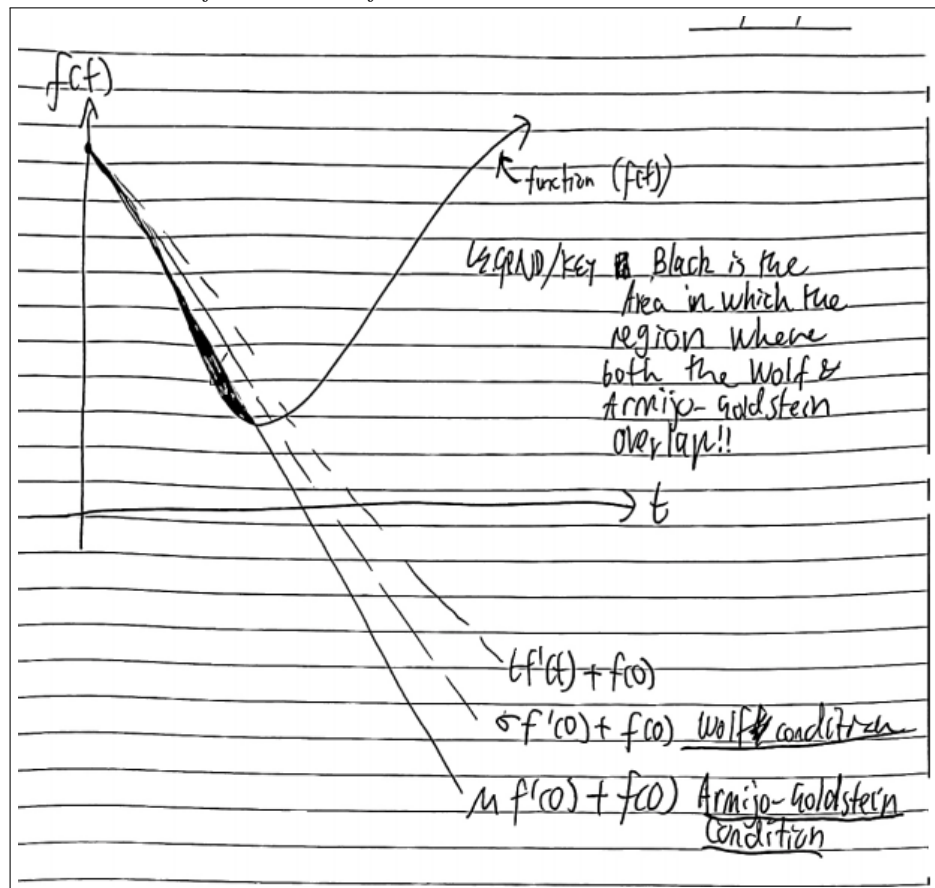 f(t)
function (f(t))
LEGEND/KEY Black is the
Area in which the
region where
both the Wolf &
Armijo-Goldstein
overlap!!
t
tf'(t) + f(0)
σ f'(0) + f(0) Wolf condition
μ f'(0) + f(0) Armijo-Goldstein
Condition